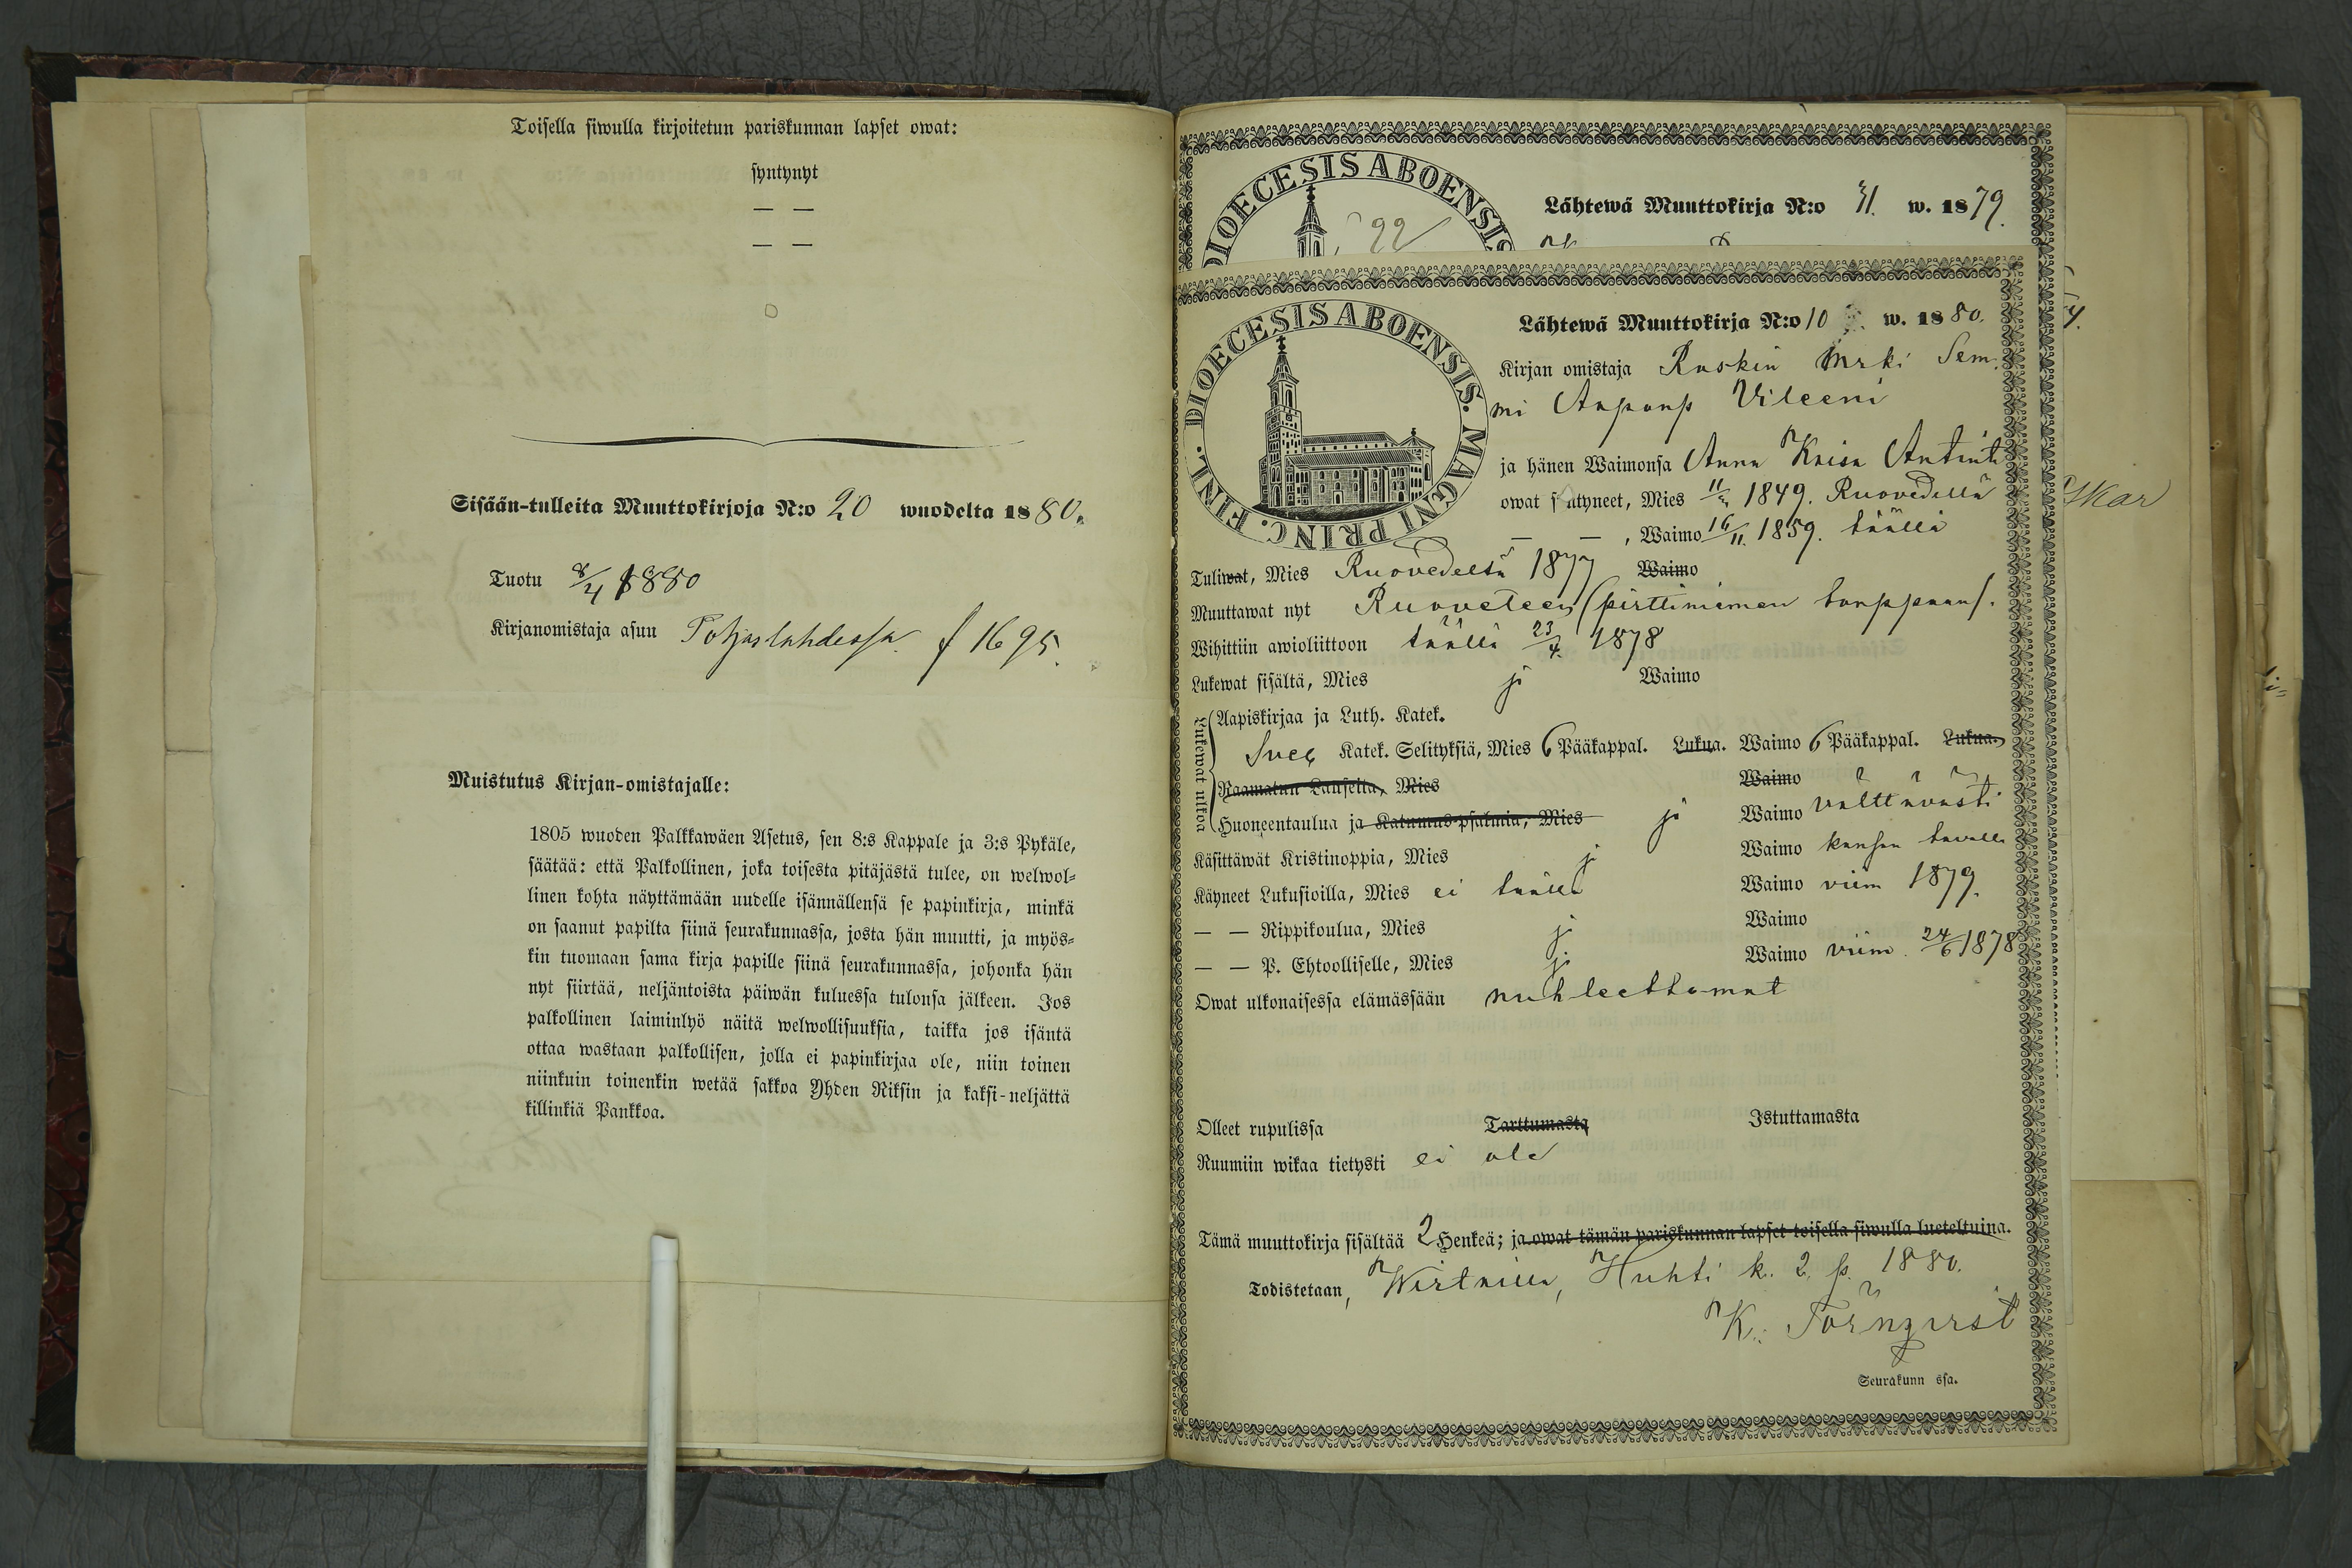 Toisella siwulla kirjoitetun pariskunnan lapset owat:
syntynyt
— —
— —
Sisään-tulleita Muuttokirjoja N:o 20 wuodelta 1880.
Tuotu 8/4 1880
Kirjanomistaja asuu Pohjaslahdessa f 1695.
Muistutus Kirjan-omistajalle:
1805 wuoden Palkkawäen Asetus, sen 8:s Kappale ja 3:s Pykäle,
säätää: että Palkollinen, joka toisesta pitäjästä tulee, on welwol-
linen kohta näyttämään uudelle isännällensä se papinkirja, minkä
on saanut papilta siinä seurakunnassa, josta hän muutti, ja myös-
kin tuomaan sama kirja papille siinä seurakunnassa, johonka hän
nyt siirtää, neljäntoista päiwän kuluessa tulonsa jälkeen. Jos
palkollinen laiminlyö näitä welwollisuuksia, taikka jos isäntä
ottaa wastaan palkollisen, jolla ei papinkirjaa ole, niin toinen
niinkuin toinenkin wetää sakkoa Yhden Riksin ja kaksi-neljättä
killinkiä Pankkoa.
DIOECESIS ABOENSIS
22
Lähtewä Muuttokirja N:o 41. w. 1879.
DIOECESIS ABOENSIS. MAGNI PRINC. FINL.
Lähtewä Muuttokirja N:o 10 w. 1880.
Kirjan omistaja
Vileeni
ja hänen Waimonsa Anna Kaisa Antint
owat syntyneet, Mies 1849. Ruovedellä
— — , Waimo 16/11. 1859. täällä
Tuliwat, Mies Ruovedeltä 1877 Waimo
Muuttawat nyt Ruoveteen (pirttiniemen torppaan).
Wihittiin awioliittoon täällä 23/4. 1878
Lukewat sisältä, Mies ji Waimo
Lukewat ulkoa
Aapiskirjaa ja Luth. Katek.
Sveb Katek. Selityksiä, Mies 6 Pääkappal. Lukua. Waimo 6 Pääkappal. Lukua.
Raamatun Lauseita, Mies Waimo
Huoneentaulua ja Katumus-psalmia, Mies ji Waimo välttävästi
Käsittäwät Kristinoppia, Mies ji Waimo kansan tavalla
Käyneet Lukusioilla, Mies ei täällä Waimo viim 1879.
— — Rippikoulua, Mies ji Waimo
— — P. Ehtoolliselle, Mies ji Waimo viim. 24/6 1878
Owat ulkonaisessa elämässään nuhteettomat
Olleet rupulissa Tarttumasta Istuttamasta
Ruumiin wikaa tietysti ei ole
Tämä muuttokirja sisältää 2 Henkeä; ja owat tämän pariskunnan lapset toisella siwulla lueteltuina.
Todistetaan, Wirtailla, Huhti k. 2 p. 1880.
K. Törnqvist
Seurakunn ssa.